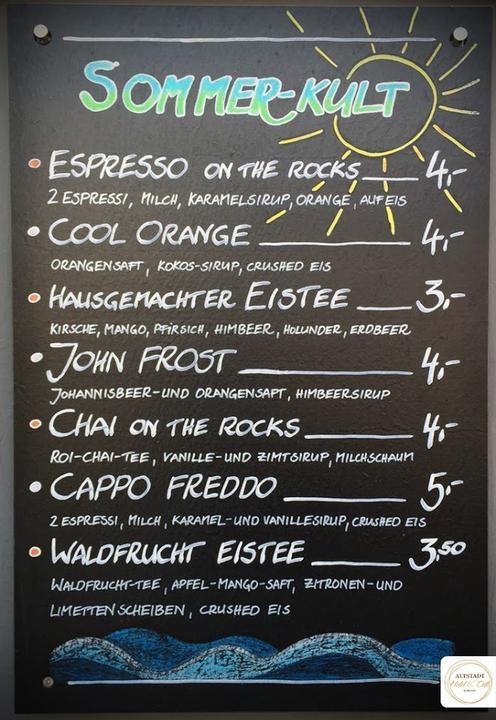 SOMMER-KULT
ESPRESSO ON THE ROCKS 4,-
2 ESPRESSI, MILCH, KARAMELSIRUP, ORANGE, AUF EIS
COOL ORANGE 4,-
ORANGENSAFT, KOKOS-SIRUP, CRUSHED EIS
HAUSGEMACHTER EISTEE 3,-
KIRSCHE, MANGO, PFIRSICH, HIMBEER, HOLUNDER, ERDBEER
JOHN FROST 4,-
JOHANNISBEER-UND ORANGENSAFT, HIMBEERSIRUP
CHAI ON THE ROCKS 4,-
ROI-CHAI-TEE, VANILLE-UND ZIMTSIRUP, MILCHSCHAUM
CAPPO FREDDO 5,-
2 ESPRESSI, MILCH, KARAMEL-UND VANILLESIRUP, CRUSHED EIS
WALDFRUCHT EISTEE 3,50
WALDFRUCHT-TEE, APFEL-MANGO-SAFT, ZITRONEN-UND
LIMETTENSCHEIBEN, CRUSHED EIS
ALTSTADT
Hotel & Café